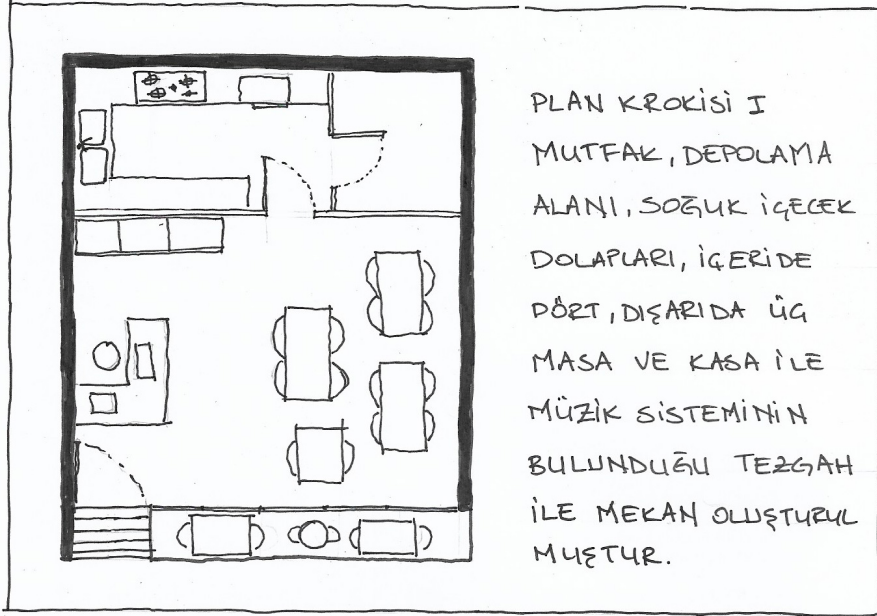 PLAN KROKİSİ I
MUTFAK, DEPOLAMA
ALANI, SOĞUK İÇECEK
DOLAPLARI, İÇERİDE
DÖRT, DIŞARIDA ÜÇ
MASA VE KASA İLE
MÜZİK SİSTEMİNİN
BULUNDUĞU TEZGAH
İLE MEKAN OLUŞTURUL
MUŞTUR.